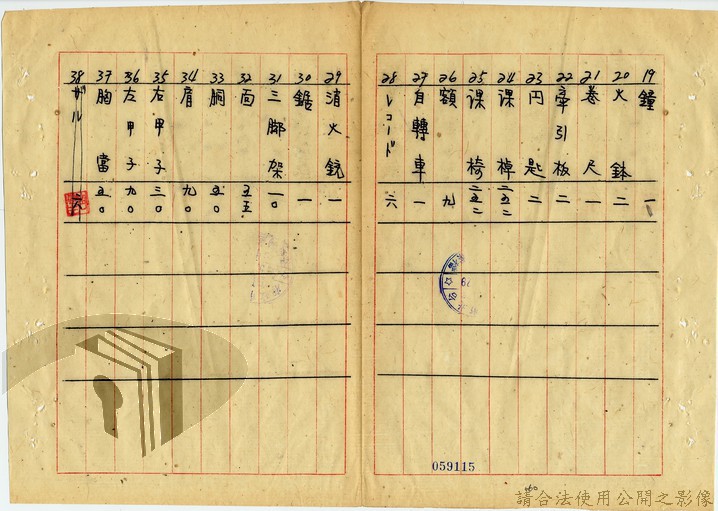 19 鐘 一
20 火鉢 二
21 卷尺 一
22 牽引板 二
23 円匙 二
24 课棹 二五二
25 课椅 二五二
26 額 九
27 自轉車 一
28 レコード 六
29 消火銃 一
30 鋸 一
31 三脚架 一〇
32 面 五五
33 胴 五〇
34 肩 九〇
35 右甲子 三〇
36 左甲子 九〇
37 胸當 五〇
38 ザル 六
059115
請合法使用公開之影像